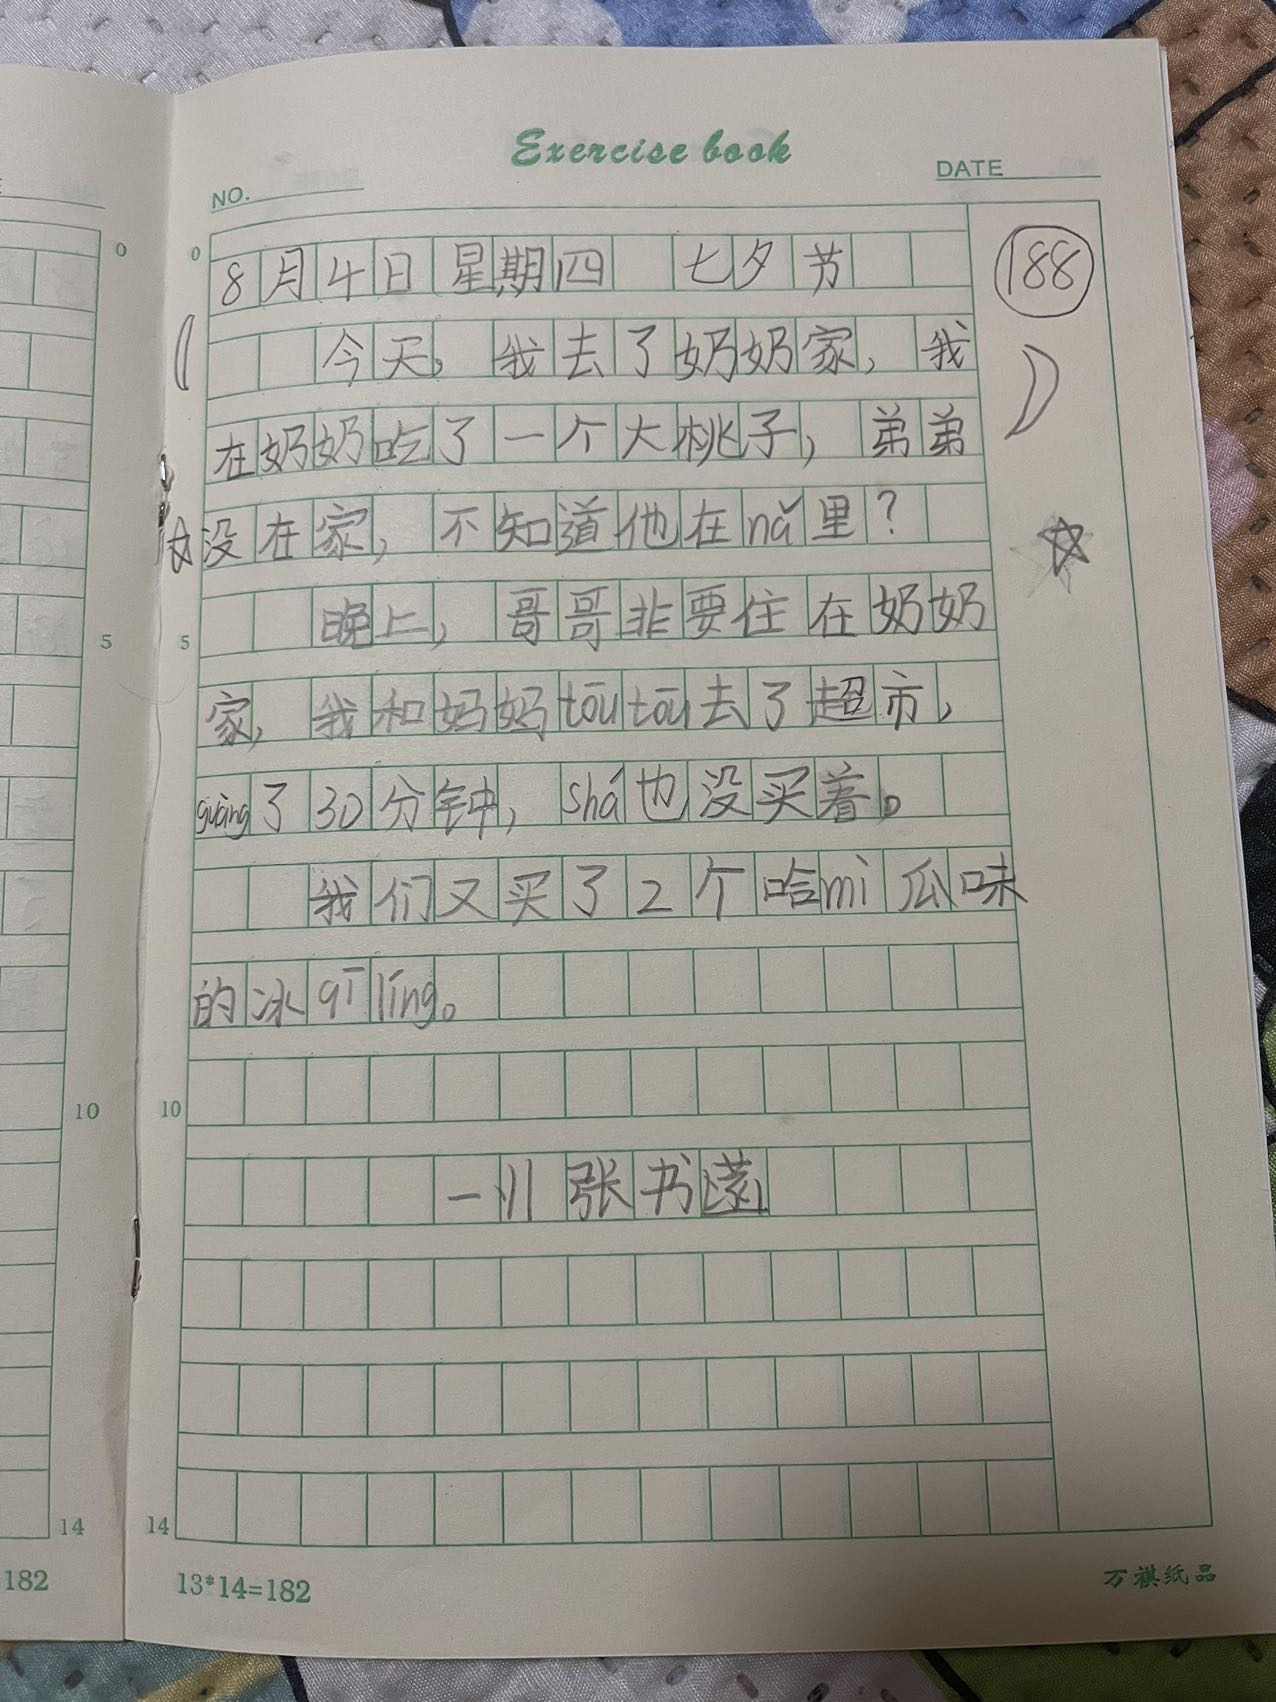 Exercise book
NO.
DATE
188
8月4日星期四 七夕节
今天，我去了奶奶家，我
在奶奶吃了一个大桃子，弟弟
没在家，不知道他在nǎ里？
晚上，哥哥非要住在奶奶
家，我和妈妈tōutōu去了超市，
guàng了30分钟，shá也没买着。
我们又买了2个哈mì瓜味
的冰qīlíng。
张书
0
5
10
14
13*14=182
万祺纸品
0
5
10
14
182